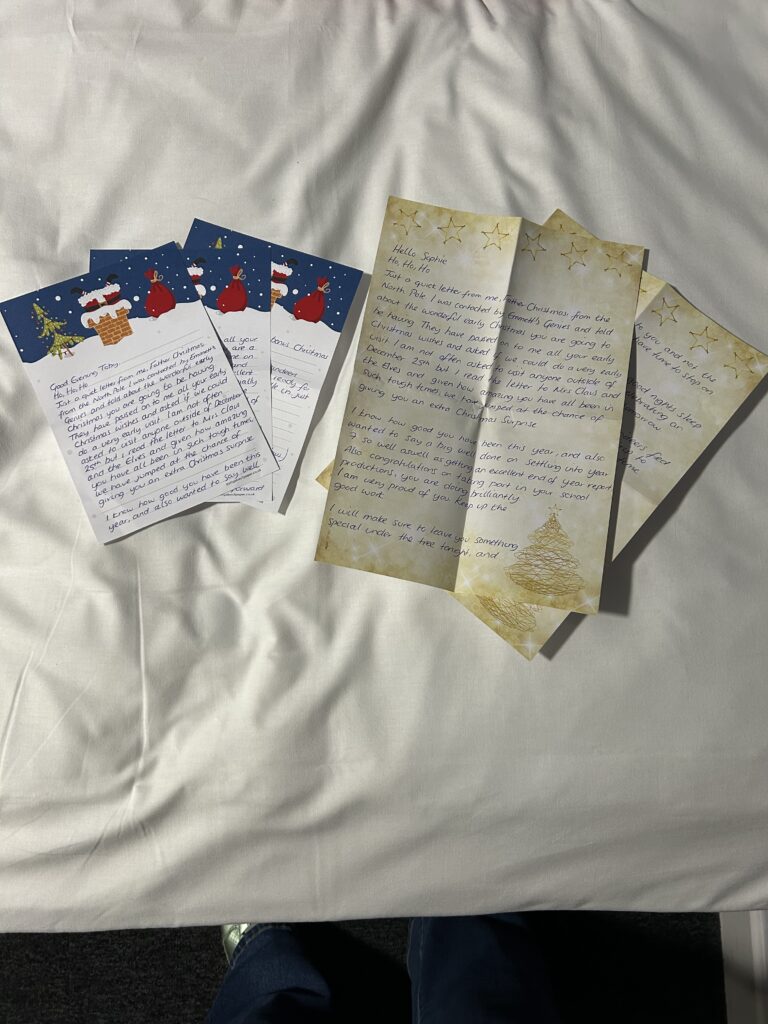 Good Evening Toby
Ho, Ho, Ho
Just a quiet letter from me, Father Christmas
from the North Pole. I was contacted by Emmett's
Genies and told about the wonderful early
Christmas you are going to be having
They have passed on to me all your early
Christmas wishes and asked if we could
do a very early visit. I am not often
asked to visit anyone outside of December
25th but I read the letter to Mrs Claus
and the Elves and given how amazing
you have all been in such tough times,
we have jumped at the chance of
giving you an extra Christmas Surprise.
I know how good you have been this
year, and also wanted to say well
all your
are a
on
and
Christmas
ready for
in just
Hello Sophie
Ho, Ho, Ho
Just a quiet letter from me, Father Christmas, from the
North Pole. I was contacted by Emmett's Genies and told
about the wonderful early Christmas you are going to
be having. They have passed on to me all your early
Christmas wishes and asked if we could do a very early
visit. I am not often asked to visit anyone outside of
December 25th but I read the letter to Mrs Claus and
the Elves and given how amazing you have all been in
such tough times, we have jumped at the chance of
giving you an extra Christmas Surprise
I know how good you have been this year, and also
wanted to say a big well done on settling into year
7 so well aswell as getting an excellent end of year report.
Also congratulations on taking part in your school
productions, you are doing brilliantly.
I am very proud of you. Keep up the
good work.
I will make sure to leave you something
special under the tree tonight, and
to you and not the
have time to stop on
good nights sleep
celebrating an
feed
to